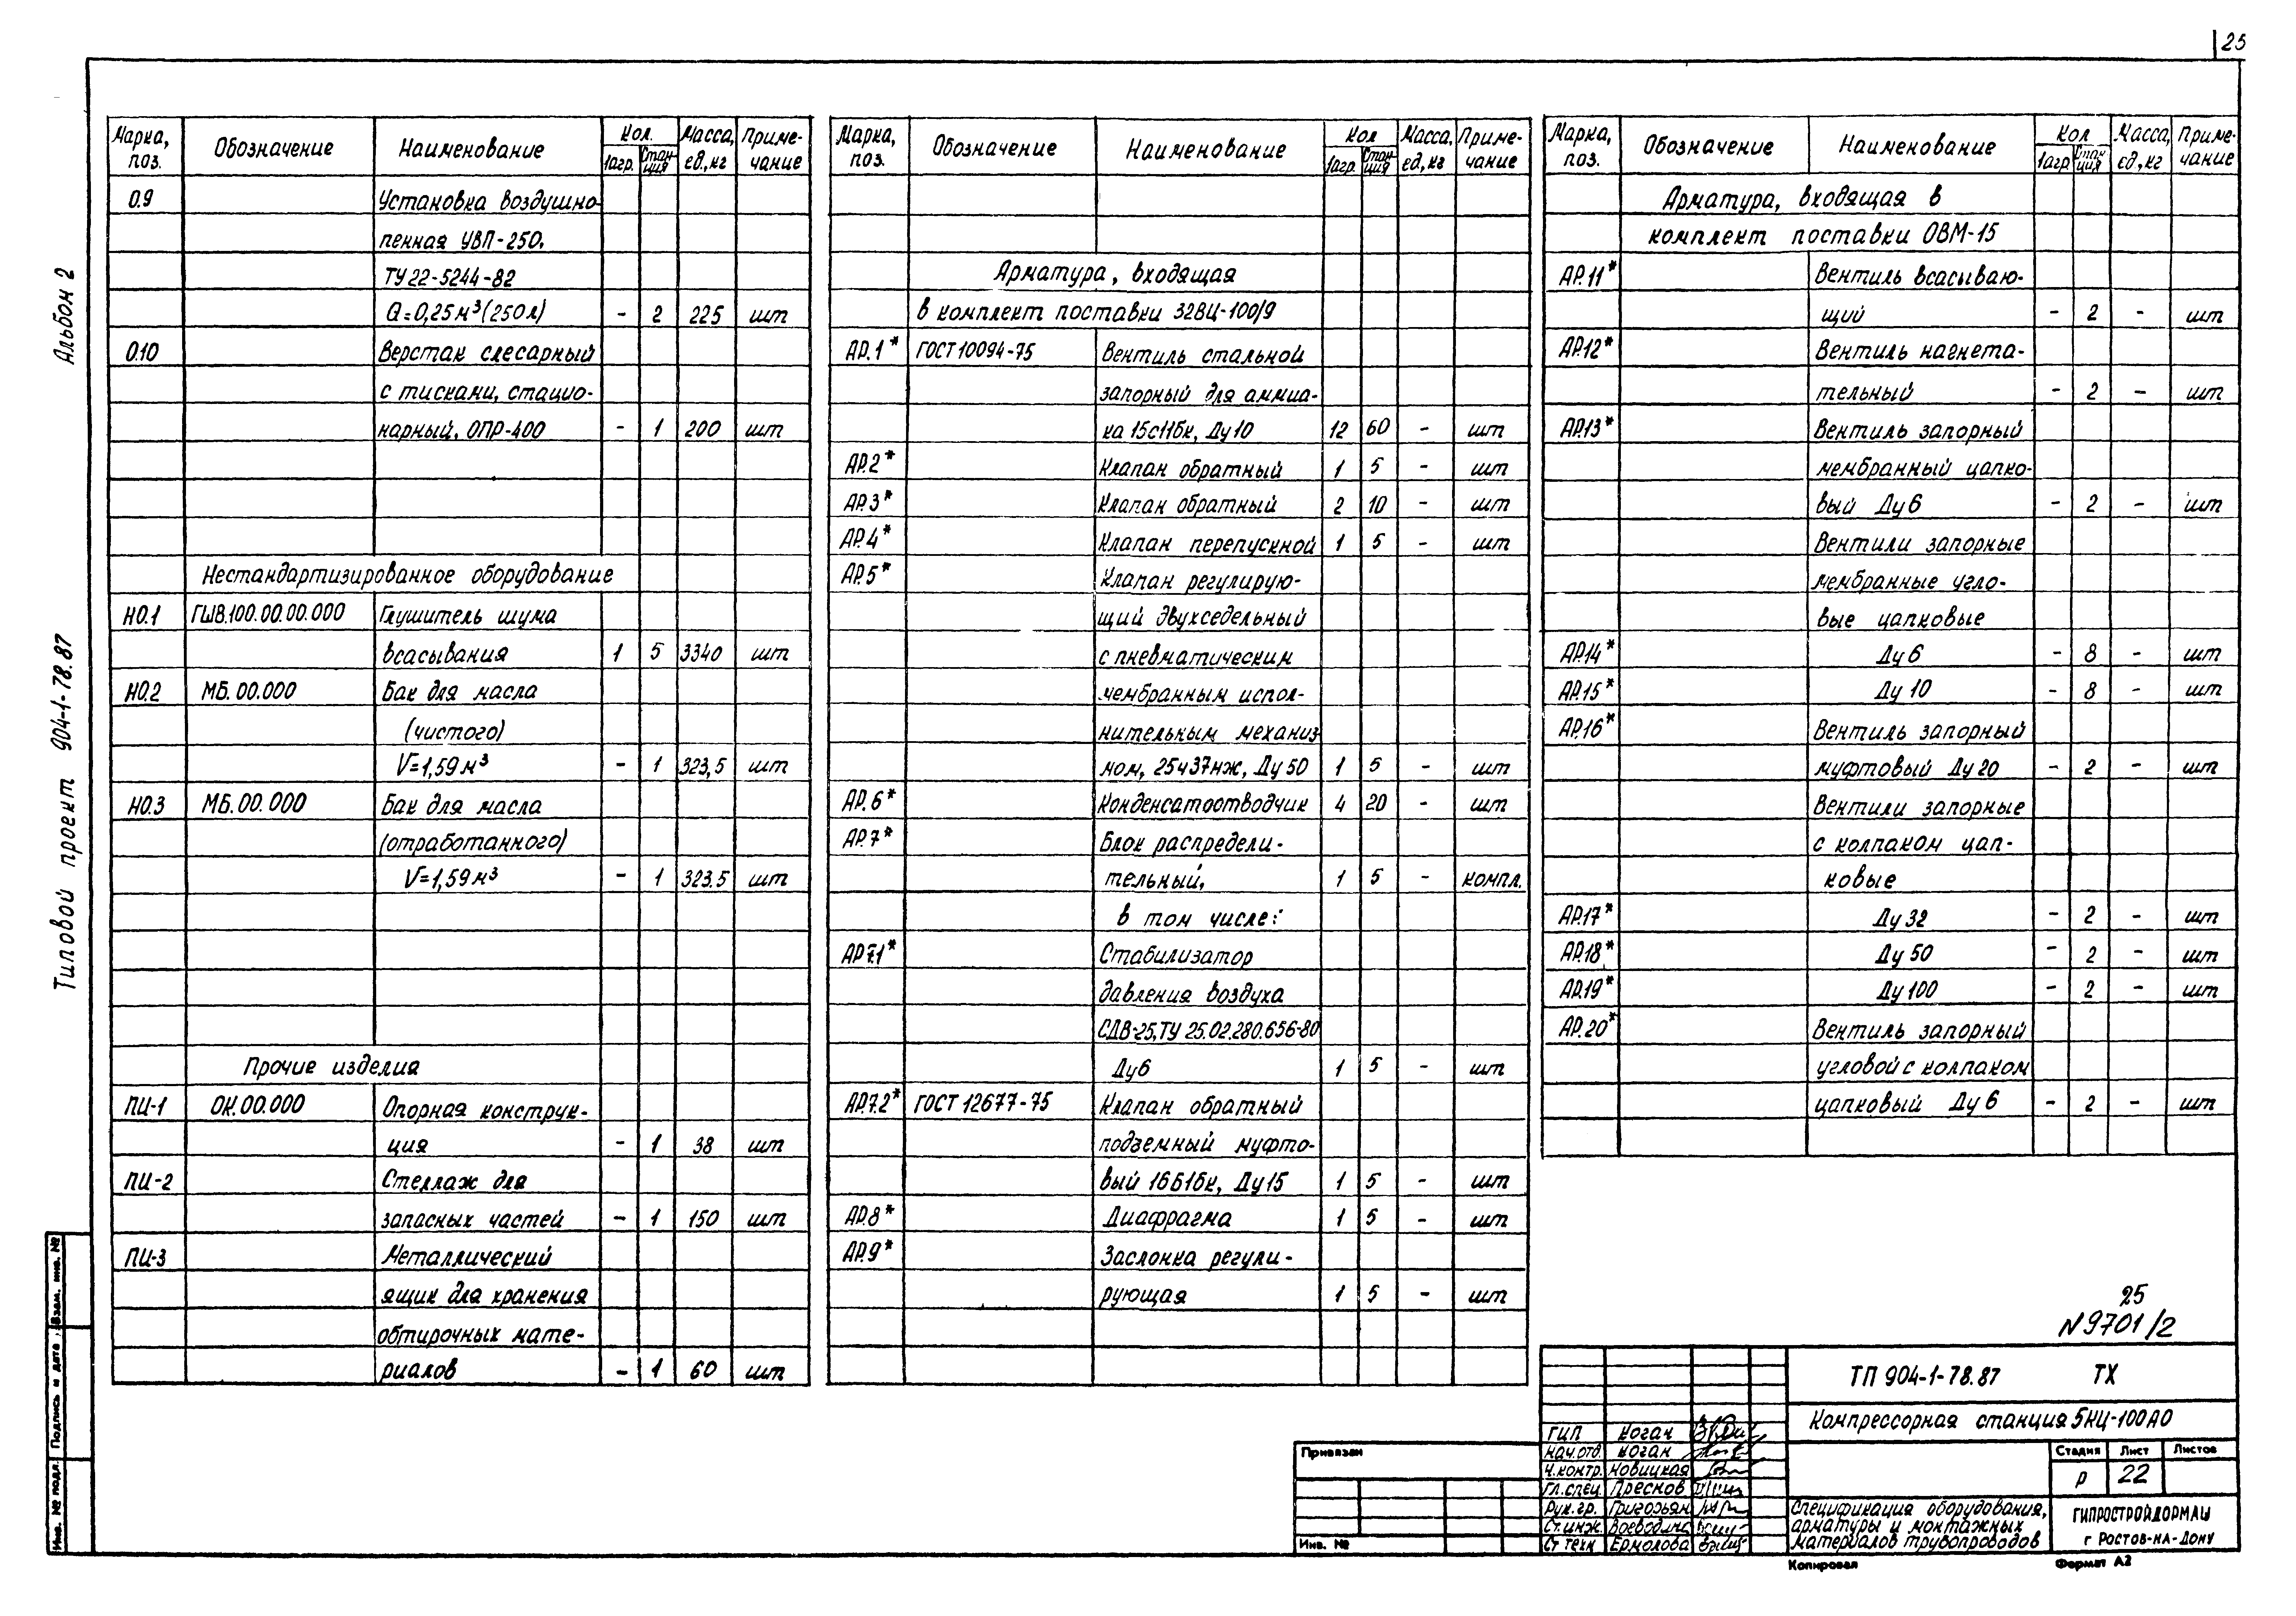 25
Альбом 2
Типовой проект 904-1-78.87
Марка, поз. Обозначение Наименование Кол. 1агр. Станция Масса, ед., кг Приме-чание
0.9 Установка воздушно-
пенная УВП-250.
ТУ 22-5244-82
Q=0,25м³(250л) - 2 225 шт
0.10 Верстак слесарный
с тисками, стацио-
нарный, ОПР-400 - 1 200 шт
Нестандартизированное оборудование
НО.1 ГШВ.100.00.00.000 Глушитель шума
всасывания 1 5 3340 шт
НО.2 МБ.00.000 Бак для масла
(чистого)
V=1,59м³ - 1 323,5 шт
НО.3 МБ.00.000 Бак для масла
(отработанного)
V=1,59м³ - 1 323.5 шт
Прочие изделия
ПИ-1 ОК.00.000 Опорная конструк-
ция - 1 38 шт
ПИ-2 Стеллаж для
запасных частей - 1 150 шт
ПИ-3 Металлический
ящик для хранения
обтирочных мате-
риалов - 1 60 шт
Марка, поз. Обозначение Наименование Кол 1агр. Стан-ция Масса, ед., кг Приме-чание
Арматура, входящая
в комплект поставки 32ВЦ-100/9
АР.1* ГОСТ 10094-75 Вентиль стальной
запорный для аммиа-
ка 15с11бк, Ду 10 12 60 - шт
АР.2* Клапан обратный 1 5 - шт
АР.3* Клапан обратный 2 10 - шт
АР.4* Клапан перепускной 1 5 - шт
АР.5* Клапан регулирую-
щий двухседельный
с пневматическим
мембранным испол-
нительным механиз
мом, 25ч37нж, Ду 50 1 5 - шт
АР.6* Конденсатоотводчик 4 20 - шт
АР.7* Блок распредели-
тельный, 1 5 - компл.
в том числе:
АР7.1* Стабилизатор
давления воздуха
СДВ-25, ТУ 25.02.280.656-80
Ду6 1 5 - шт
АР.7.2* ГОСТ 12677-75 Клапан обратный
подземный муфто-
вый 16Б1бк, Ду15 1 5 - шт
АР.8* Диафрагма 1 5 - шт
АР.9* Заслонка регули-
рующая 1 5 - шт
Марка, поз. Обозначение Наименование Кол 1агр Стан ция Масса, ед, кг Приме-чание
Арматура, входящая в
комплект поставки ОВМ-15
АР.11* Вентиль всасываю-
щий - 2 - шт
АР.12* Вентиль нагнета-
тельный - 2 - шт
АР.13* Вентиль запорный
мембранный цапко-
вый Ду6 - 2 - шт
Вентили запорные
мембранные угло-
вые цапковые
АР.14* Ду 6 - 8 - шт
АР.15* Ду 10 - 8 - шт
АР.16* Вентиль запорный
муфтовый Ду 20 - 2 - шт
Вентили запорные
с колпаком цап-
ковые
АР.17* Ду 32 - 2 - шт
АР.18* Ду 50 - 2 - шт
АР.19* Ду 100 - 2 - шт
АР.20* Вентиль запорный
угловой с колпаком
цапковый Ду 6 - 2 - шт
25
N 9701/2
ТП 904-1-78.87 ТХ
Компрессорная станция 5КЦ-100АО
Стадия Лист Листов
Р 22
ГИП Коган
Нач.отд. Коган
Н.контр. Новицкая
Гл.спец Пресков
Рук.гр. Григорьян
Ст.инж. Воеводина
Ст техн Ермолова
Спецификация оборудования,
арматуры и монтажных
материалов трубопроводов
ГИПРОСТРОЙДОРМАШ
г РОСТОВ-НА-ДОНУ
Привязан
Инв. №
Копировал Формат А2
Инв. № подл. Подпись и дата Взам. инв. №